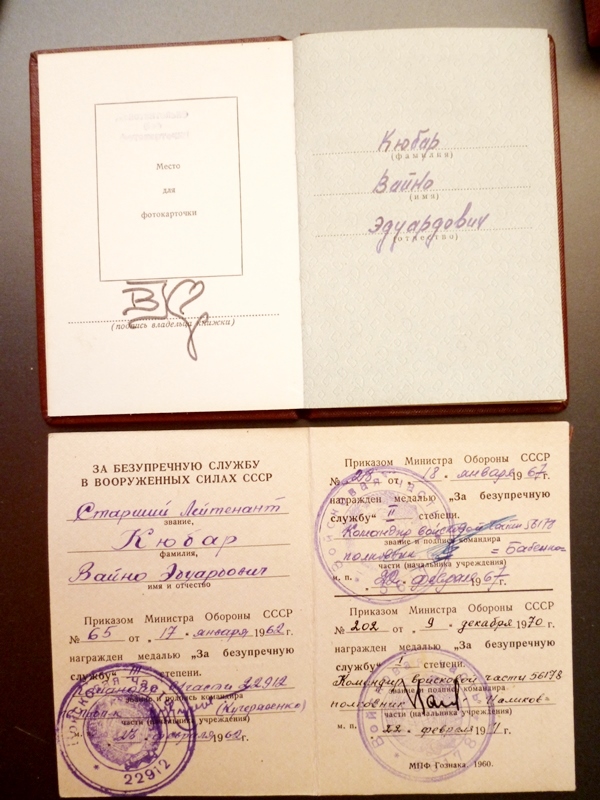 Место
для
фотокарточки
(подпись владельца книжки)
Кюбар
(фамилия)
Вайно
(имя)
Эдуардович
(отчество)
ЗА БЕЗУПРЕЧНУЮ СЛУЖБУ
В ВООРУЖЕННЫХ СИЛАХ СССР
Старший Лейтенант
звание,
Кюбар
фамилия,
Вайно Эдуардович
имя и отчество
Приказом Министра Обороны СССР
№ 65 от „17" января 1962 г.
награжден медалью „За безупречную
службу" III степени.
части 22912
звание и подпись командира
части (начальника учреждения)
1962 г.
22912
Приказом Министра Обороны СССР
№ от „18" января 1967 г.
награжден медалью „За безупречную
службу" II степени.
Командир войсковой части 56178
звание и подпись командира
полковник
части (начальника учреждения)
м. п. февраля 67 г.
Приказом Министра Обороны СССР
№ 202 от „9" декабря 1970 г.
награжден медалью „За безупречную
службу" I степени.
Командир войсковой части 56178
звание и подпись командира
полковник
части (начальника учреждения)
м. п. „22" февраля г.
МПФ Гознака. 1960.